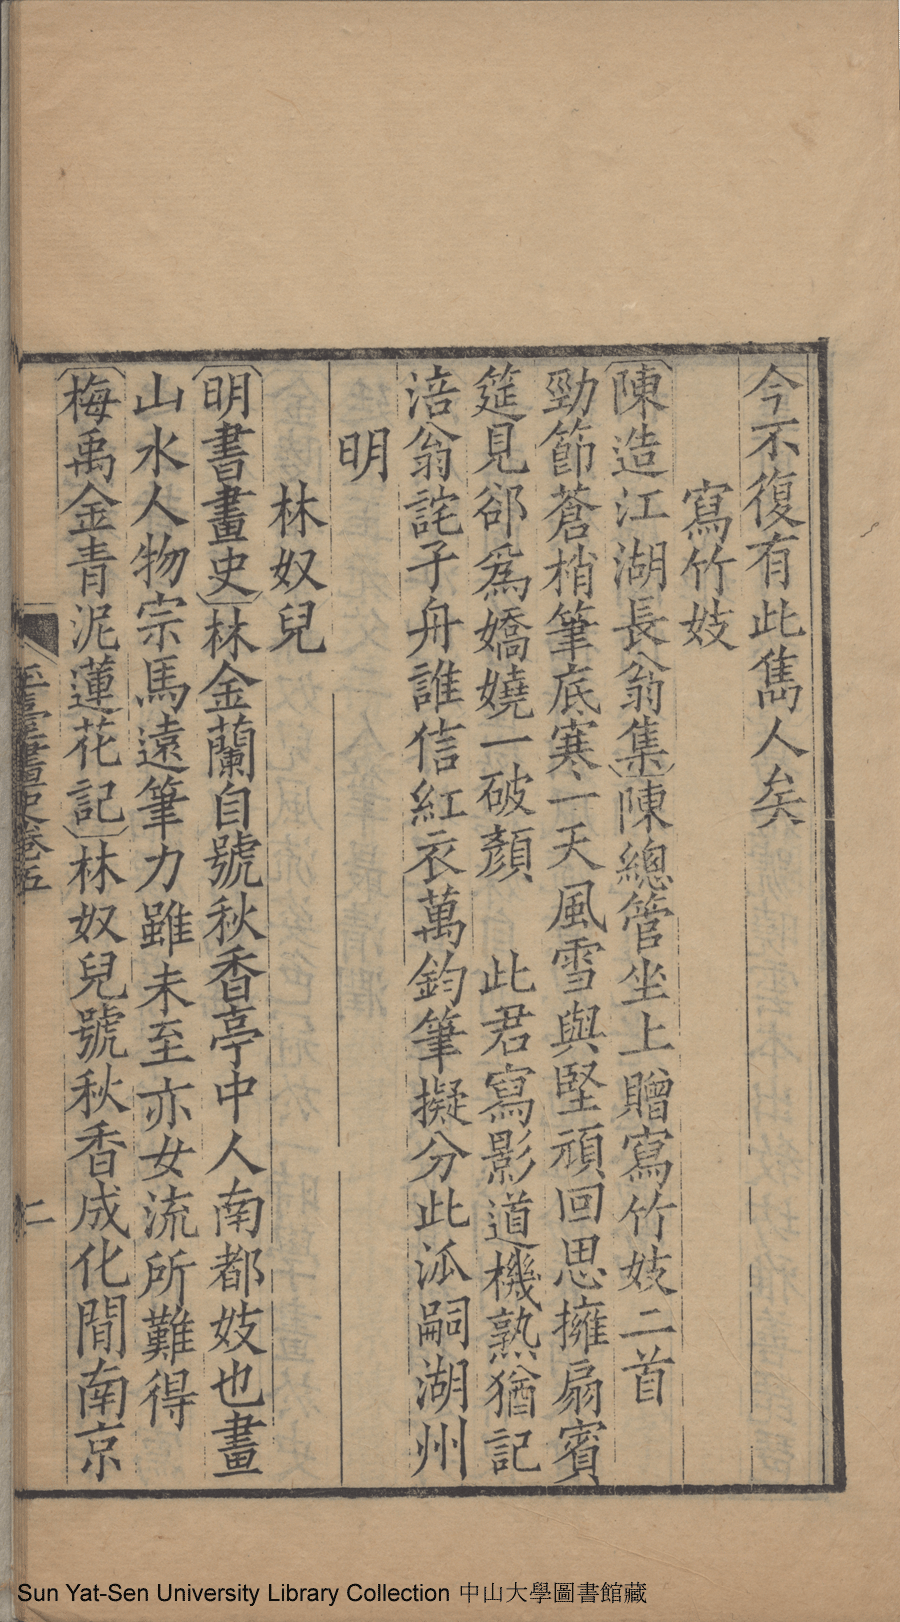 今不復有此雋人矣
寫竹妓
〔陳造江湖長翁集〕陳總管坐上贈寫竹妓二首
勁節蒼梢筆底寒一天風雪與堅頑回思擁扇賓
筵見郤爲嬌嬈一破顏　此君寫影道機熟猶記
涪翁詫子舟誰信紅衣萬鈞筆擬分此泒嗣湖州
明
林奴兒
〔明書畫史〕林金蘭自號秋香亭中人南都妓也畫
山水人物宗馬遠筆力雖未至亦女流所難得
〔梅禹金青泥蓮花記〕林奴兒號秋香成化間南京
玉臺畫史卷五
Sun Yat-Sen University Library Collection 中山大學圖書館藏